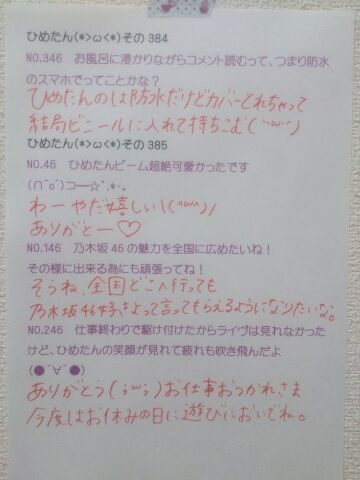 ひめたん(*>ω<*)その384
NO.346　お風呂に浸かりながらコメント読むって、つまり防水
のスマホでってことかな?
ひめたんのは防水だけどカバーとれちゃって
結局ビニールに入れて持ちこむ(´･ω･`)
ひめたん(*>ω<*)その385
NO.46　ひめたんビーム超絶可愛かったです
(∩^o^)⊃━☆ﾟ.*･｡
わーやだ嬉しい\(^ω^)/
ありがとー♡
NO.146　乃木坂46の魅力を全国に広めたいね!
その様に出来る為にも頑張ってね!
そうね、全国どこへ行っても
乃木坂46好きよって言ってもらえるようになりたいな。
NO.246　仕事終わりで駆け付けたからライヴは見れなかった
けど、ひめたんの笑顔が見れて疲れも吹き飛んだよ
(●´∀`●)
ありがとう(；ω；)お仕事おつかれさま
今度はお休みの日に遊びにおいでね。